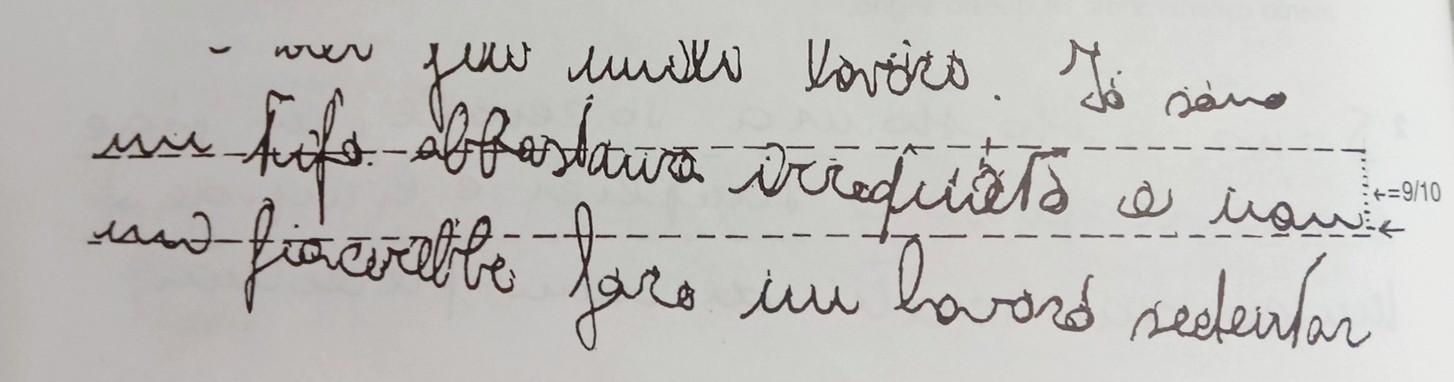 per me molto lavoro. Io sono
un tipo abbastanza irrequieto e non
mi piacerebbe fare un lavoro sedentar
←=9/10
←